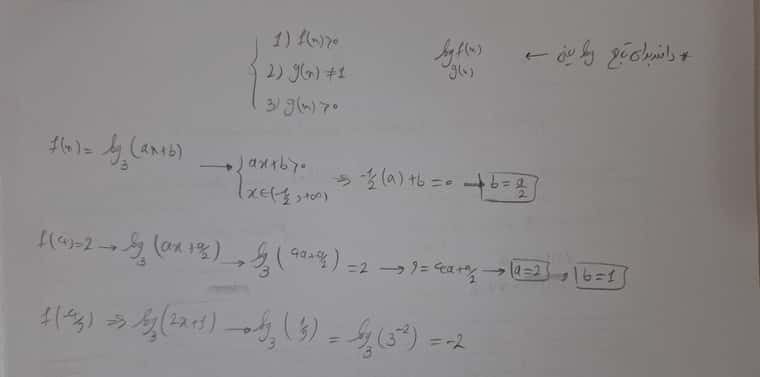 * دامنه برای تابع log یعنی ← log f(x) g(x)
1) f(x)>0
2) g(x) ≠ 1
3) g(x)>0
f(x) = log₃(ax+b) → { ax+b>0 x∈(-1/2, +∞) ⇒ -1/2(a)+b=0 → b=a/2
f(4)=2 → log₃(ax+a/2) → log₃(4a+a/2) = 2 → 9=4a+a/2 → a=2 → b=1
f(-4/9) ⇒ log₃(2x+1) → log₃(1/9) = log₃(3⁻²) = -2